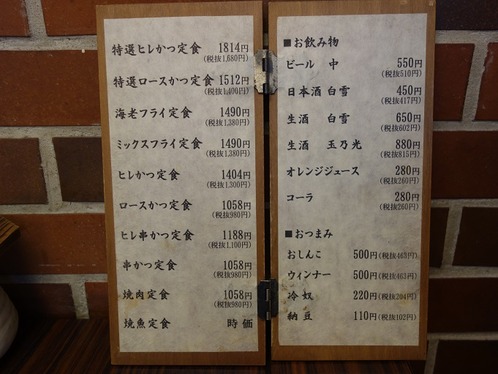 特選ヒレかつ定食 1814円
(税抜1,680円)
特選ロースかつ定食 1512円
(税抜1,400円)
海老フライ定食 1490円
(税抜1,380円)
ミックスフライ定食 1490円
(税抜1,380円)
ヒレかつ定食 1404円
(税抜1,300円)
ロースかつ定食 1058円
(税抜980円)
ヒレ串かつ定食 1188円
(税抜1,100円)
串かつ定食 1058円
(税抜980円)
焼肉定食 1058円
(税抜980円)
焼魚定食 時価
■お飲み物
ビール 中 550円
(税抜510円)
日本酒 白雪 450円
(税抜417円)
生酒 白雪 650円
(税抜602円)
生酒 玉乃光 880円
(税抜815円)
オレンジジュース 280円
(税抜260円)
コーラ 280円
(税抜260円)
■おつまみ
おしんこ 500円(税抜463円)
ウィンナー 500円(税抜463円)
冷奴 220円(税抜204円)
納豆 110円(税抜102円)